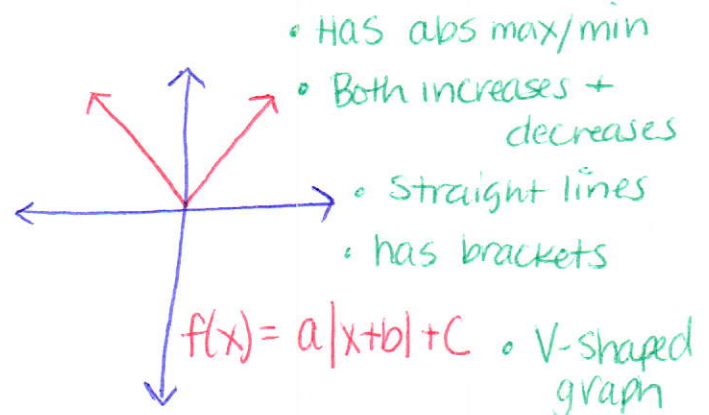 • Has abs max/min
• Both increases +
decreases
• Straight lines
• has brackets
f(x) = a|x+b| + C
• V-shaped
graph